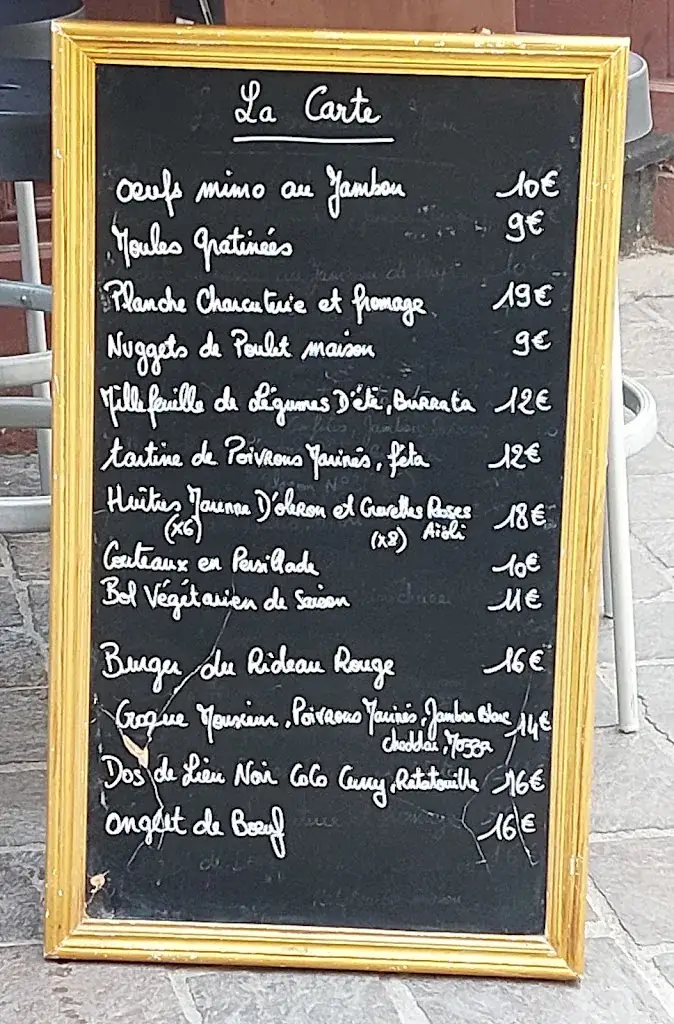 La Carte
oeufs mimo au Jambon 10€
Moules gratinées 9€
Planche Charcuterie et fromage 19€
Nuggets de Poulet maison 9€
Millefeuille de Légumes D'été, BURRata 12€
tartine de PoivRons Marinés, féta 12€
Huîtres Marenne D'oleron et Crevettes Roses 18€
(x6) (x8) Aïoli
Couteaux en Persillade 10€
Bol Végétarien de Saison 11€
Burger du Rideau Rouge 16€
Croque Monsieur, PoivRons Marinés, Jambon Blanc 14€
cheddar, Mozza
Dos de Lieu Noir CoCo Curry, Ratatouille 16€
onglet de Boeuf 16€